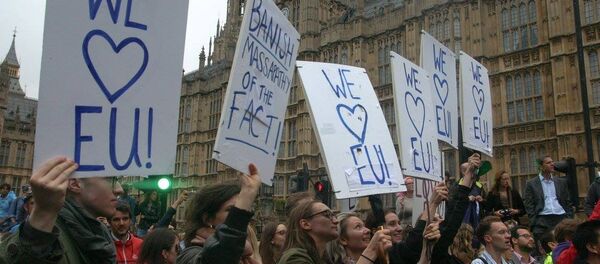 WE
♡
EU!
BANISH
MASSAPATHY
OF THE
FACT!
WE
♡
EU!
WE
♡
EU!
WE
♡
EU!
WE
♡
EU!